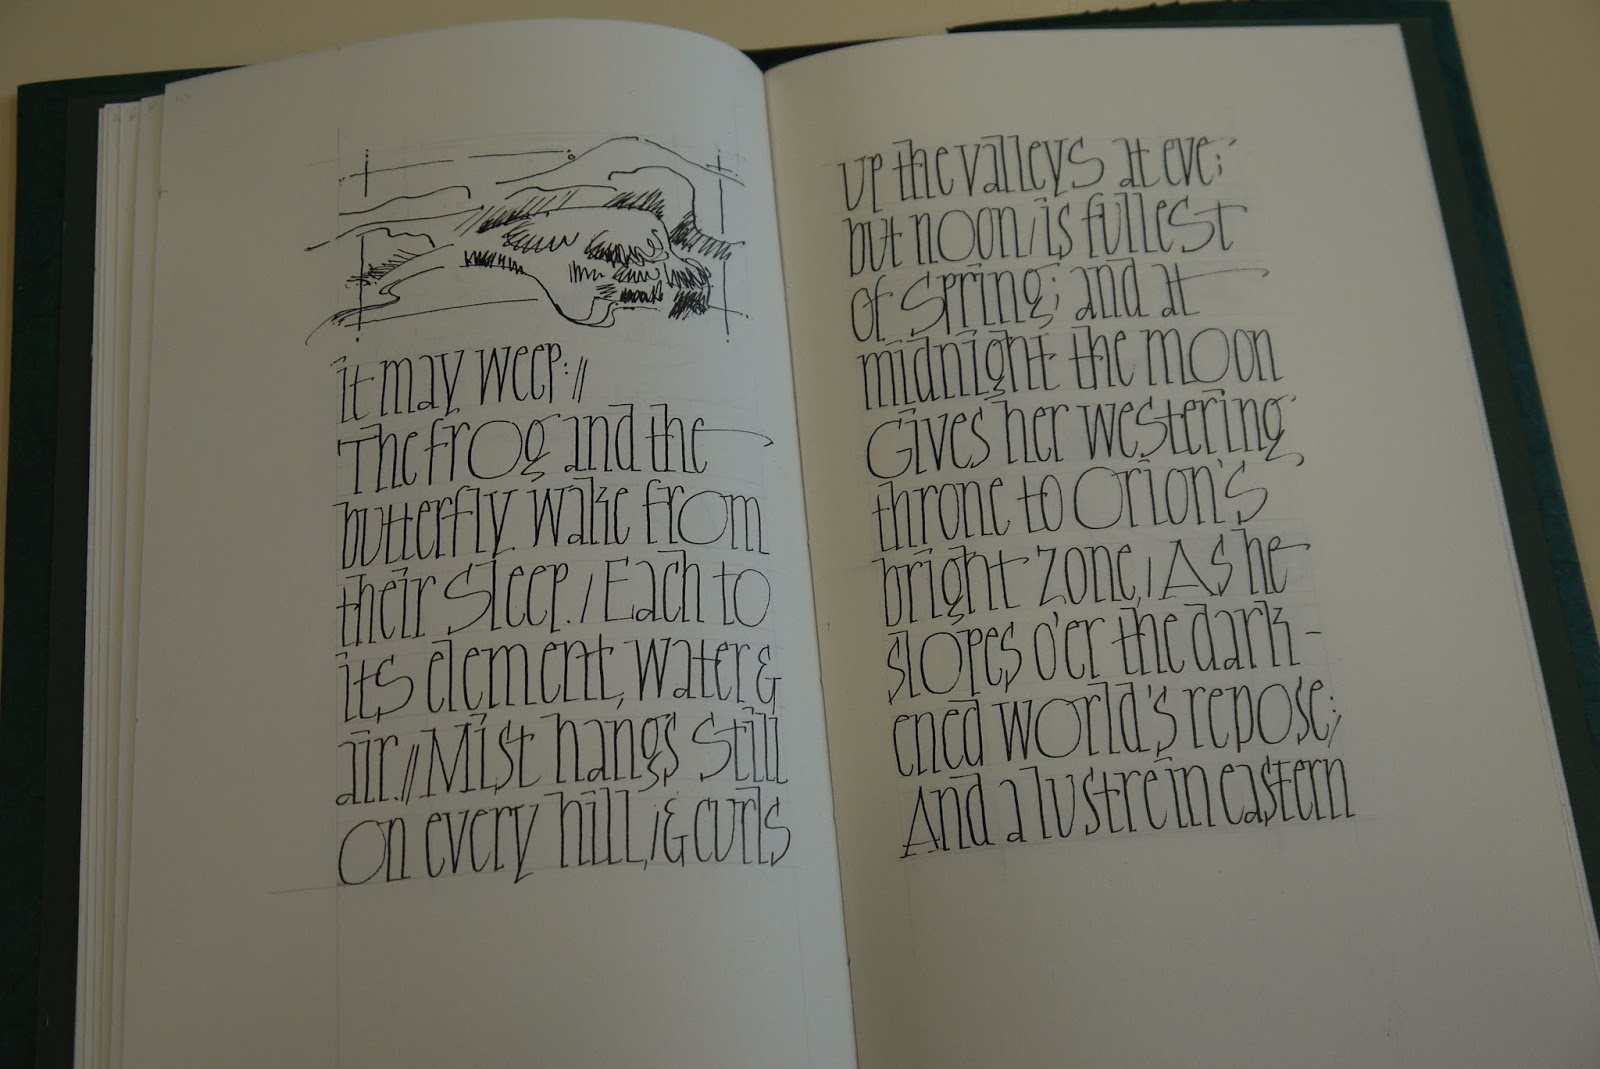 it may weep: //
The frog and the
butterfly wake from
their sleep. / Each to
its element, water &
air. // Mist hangs still
on every hill, / & curls
up the valleys at eve;
but noon / is fullest
of Spring; and at
midnight the moon
Gives her westering
throne to Orion's
bright zone, / As he
slopes o'er the dark-
ened world's repose;
And a lustre in eastern